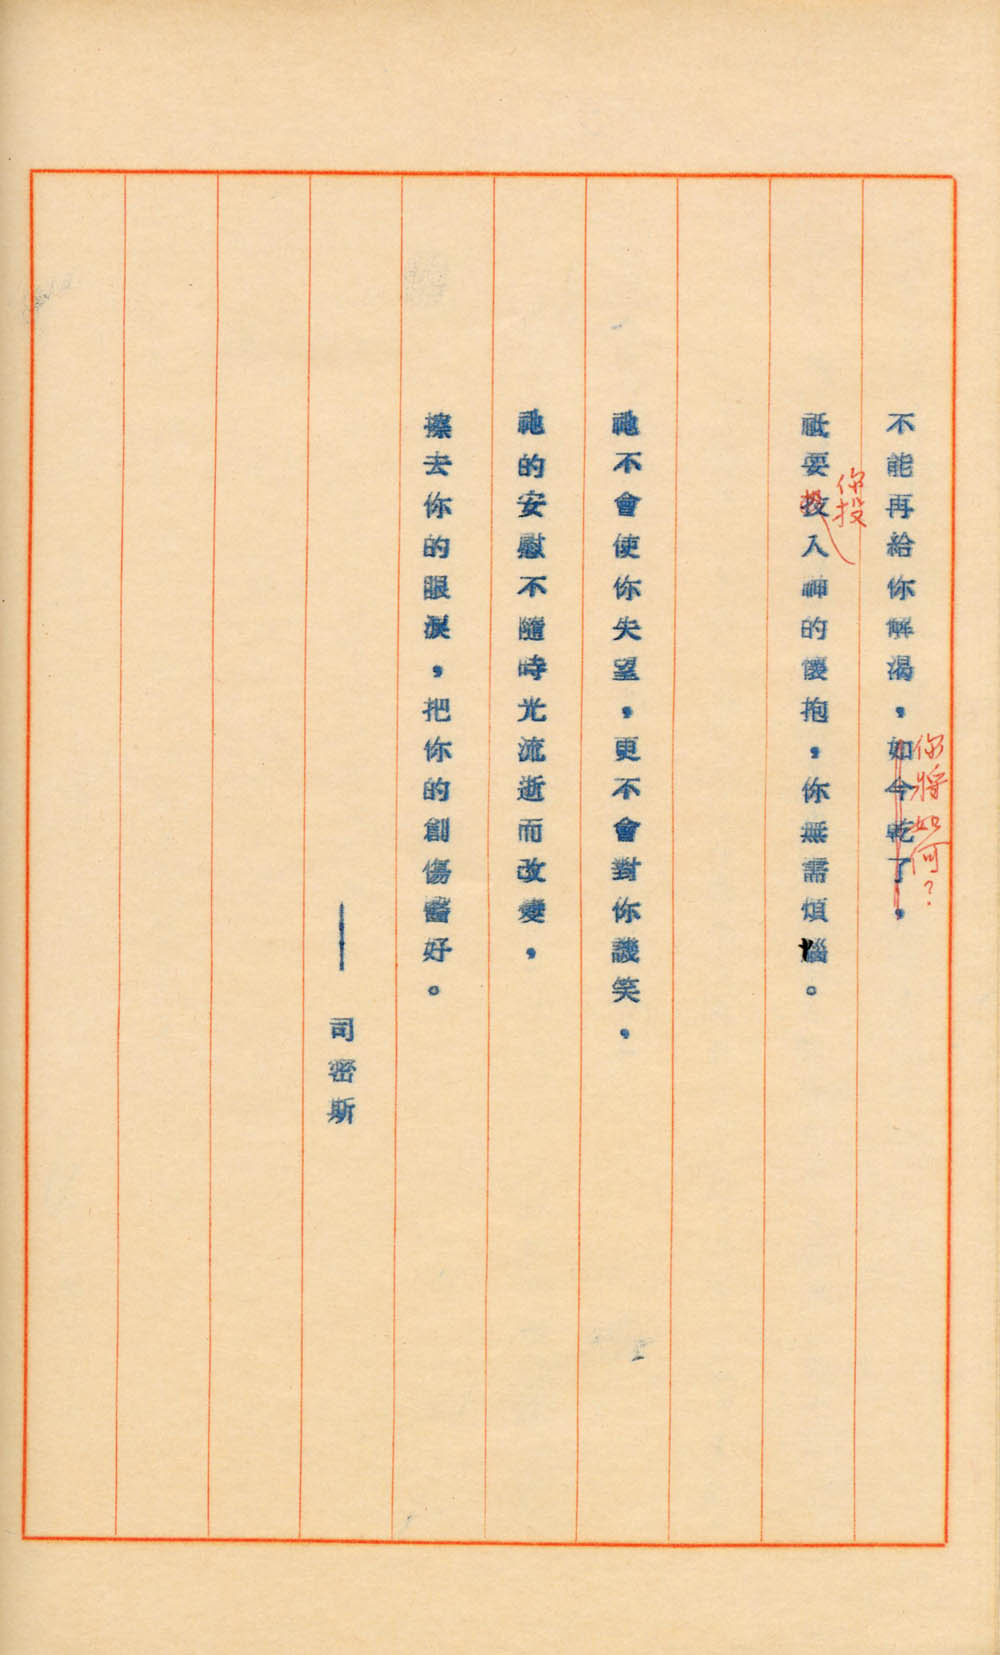 不能再給你解渴，如今乾了，
你將如何？
祗要投入神的懷抱，你無需煩惱。
你投
祂不會使你失望，更不會對你譏笑，
祂的安慰不隨時光流逝而改變，
擦去你的眼淚，把你的創傷醫好。
——司密斯